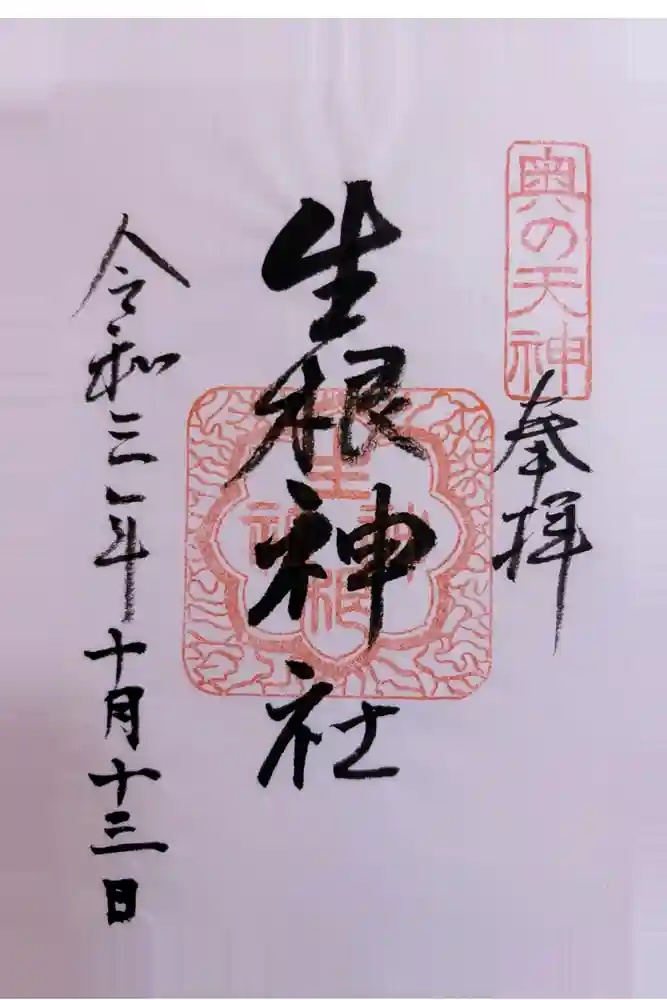 奥の天神
奉拝
生根神社
生根神社
令和三年十月十三日